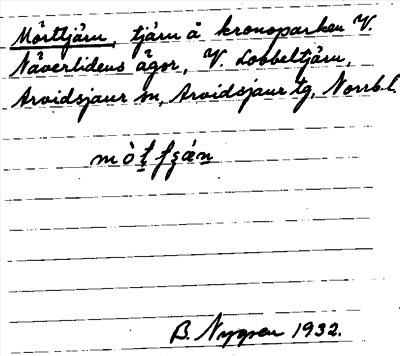 Mörttjärn, tjärn å kronoparken V.
Näverlidens ägor, V. Lobbeltjärn,
Arvidsjaur sn, Arvidsjaur tg, Norrb. l.
B. Nygren 1932.